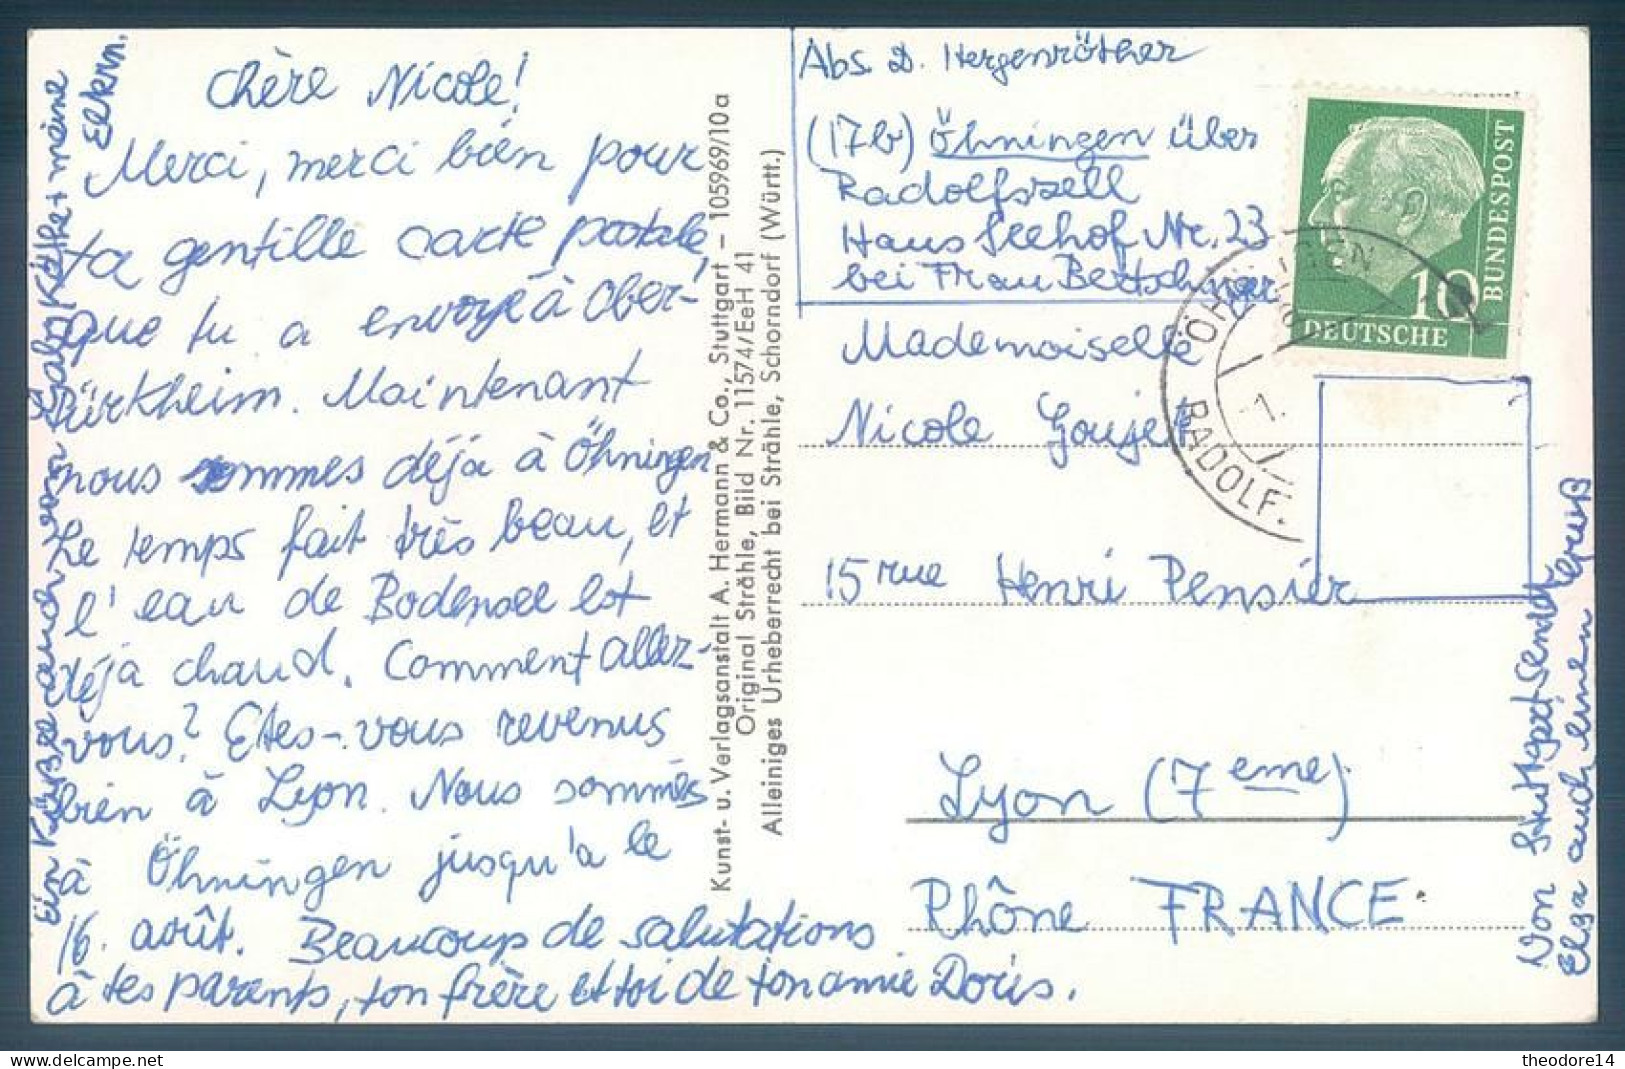 Chère Nicole!
Merci, merci bien pour
ta gentille carte postale,
que tu a envoyé à Ober-
türkheim. Maintenant
nous sommes déja à Öhningen
Le temps fait très beau, et
l'eau de Bodensee est
déja chaud. Comment allez-
vous? Etes-vous revenus
bien à Lyon. Nous sommes
à Öhningen jusqu'a le
16. août. Beaucoup de salutations
à tes parents, ton frère et toi de ton amie Doris.
auch von Gaby, Käthe + meine
Eltern.
Kunst- u. Verlagsanstalt A. Hermann & Co., Stuttgart – 105969/10a
Original Strähle, Bild Nr. 11574/EeH 41
Alleiniges Urheberrecht bei Strähle, Schorndorf (Württ.)
Abs. D. Hergenröther
(17b) Öhningen über
Radolfszell
Haus Seehof Nr. 23
bei Frau
Mademoiselle
Nicole Goujet
15 rue Henri Pensier
Lyon (7eme)
Rhône FRANCE
DEUTSCHE
BUNDESPOST
10
ÖHNINGEN
RADOLF.
Von Stuttgart sendet
Elsa auch einen Gruß
theodore14